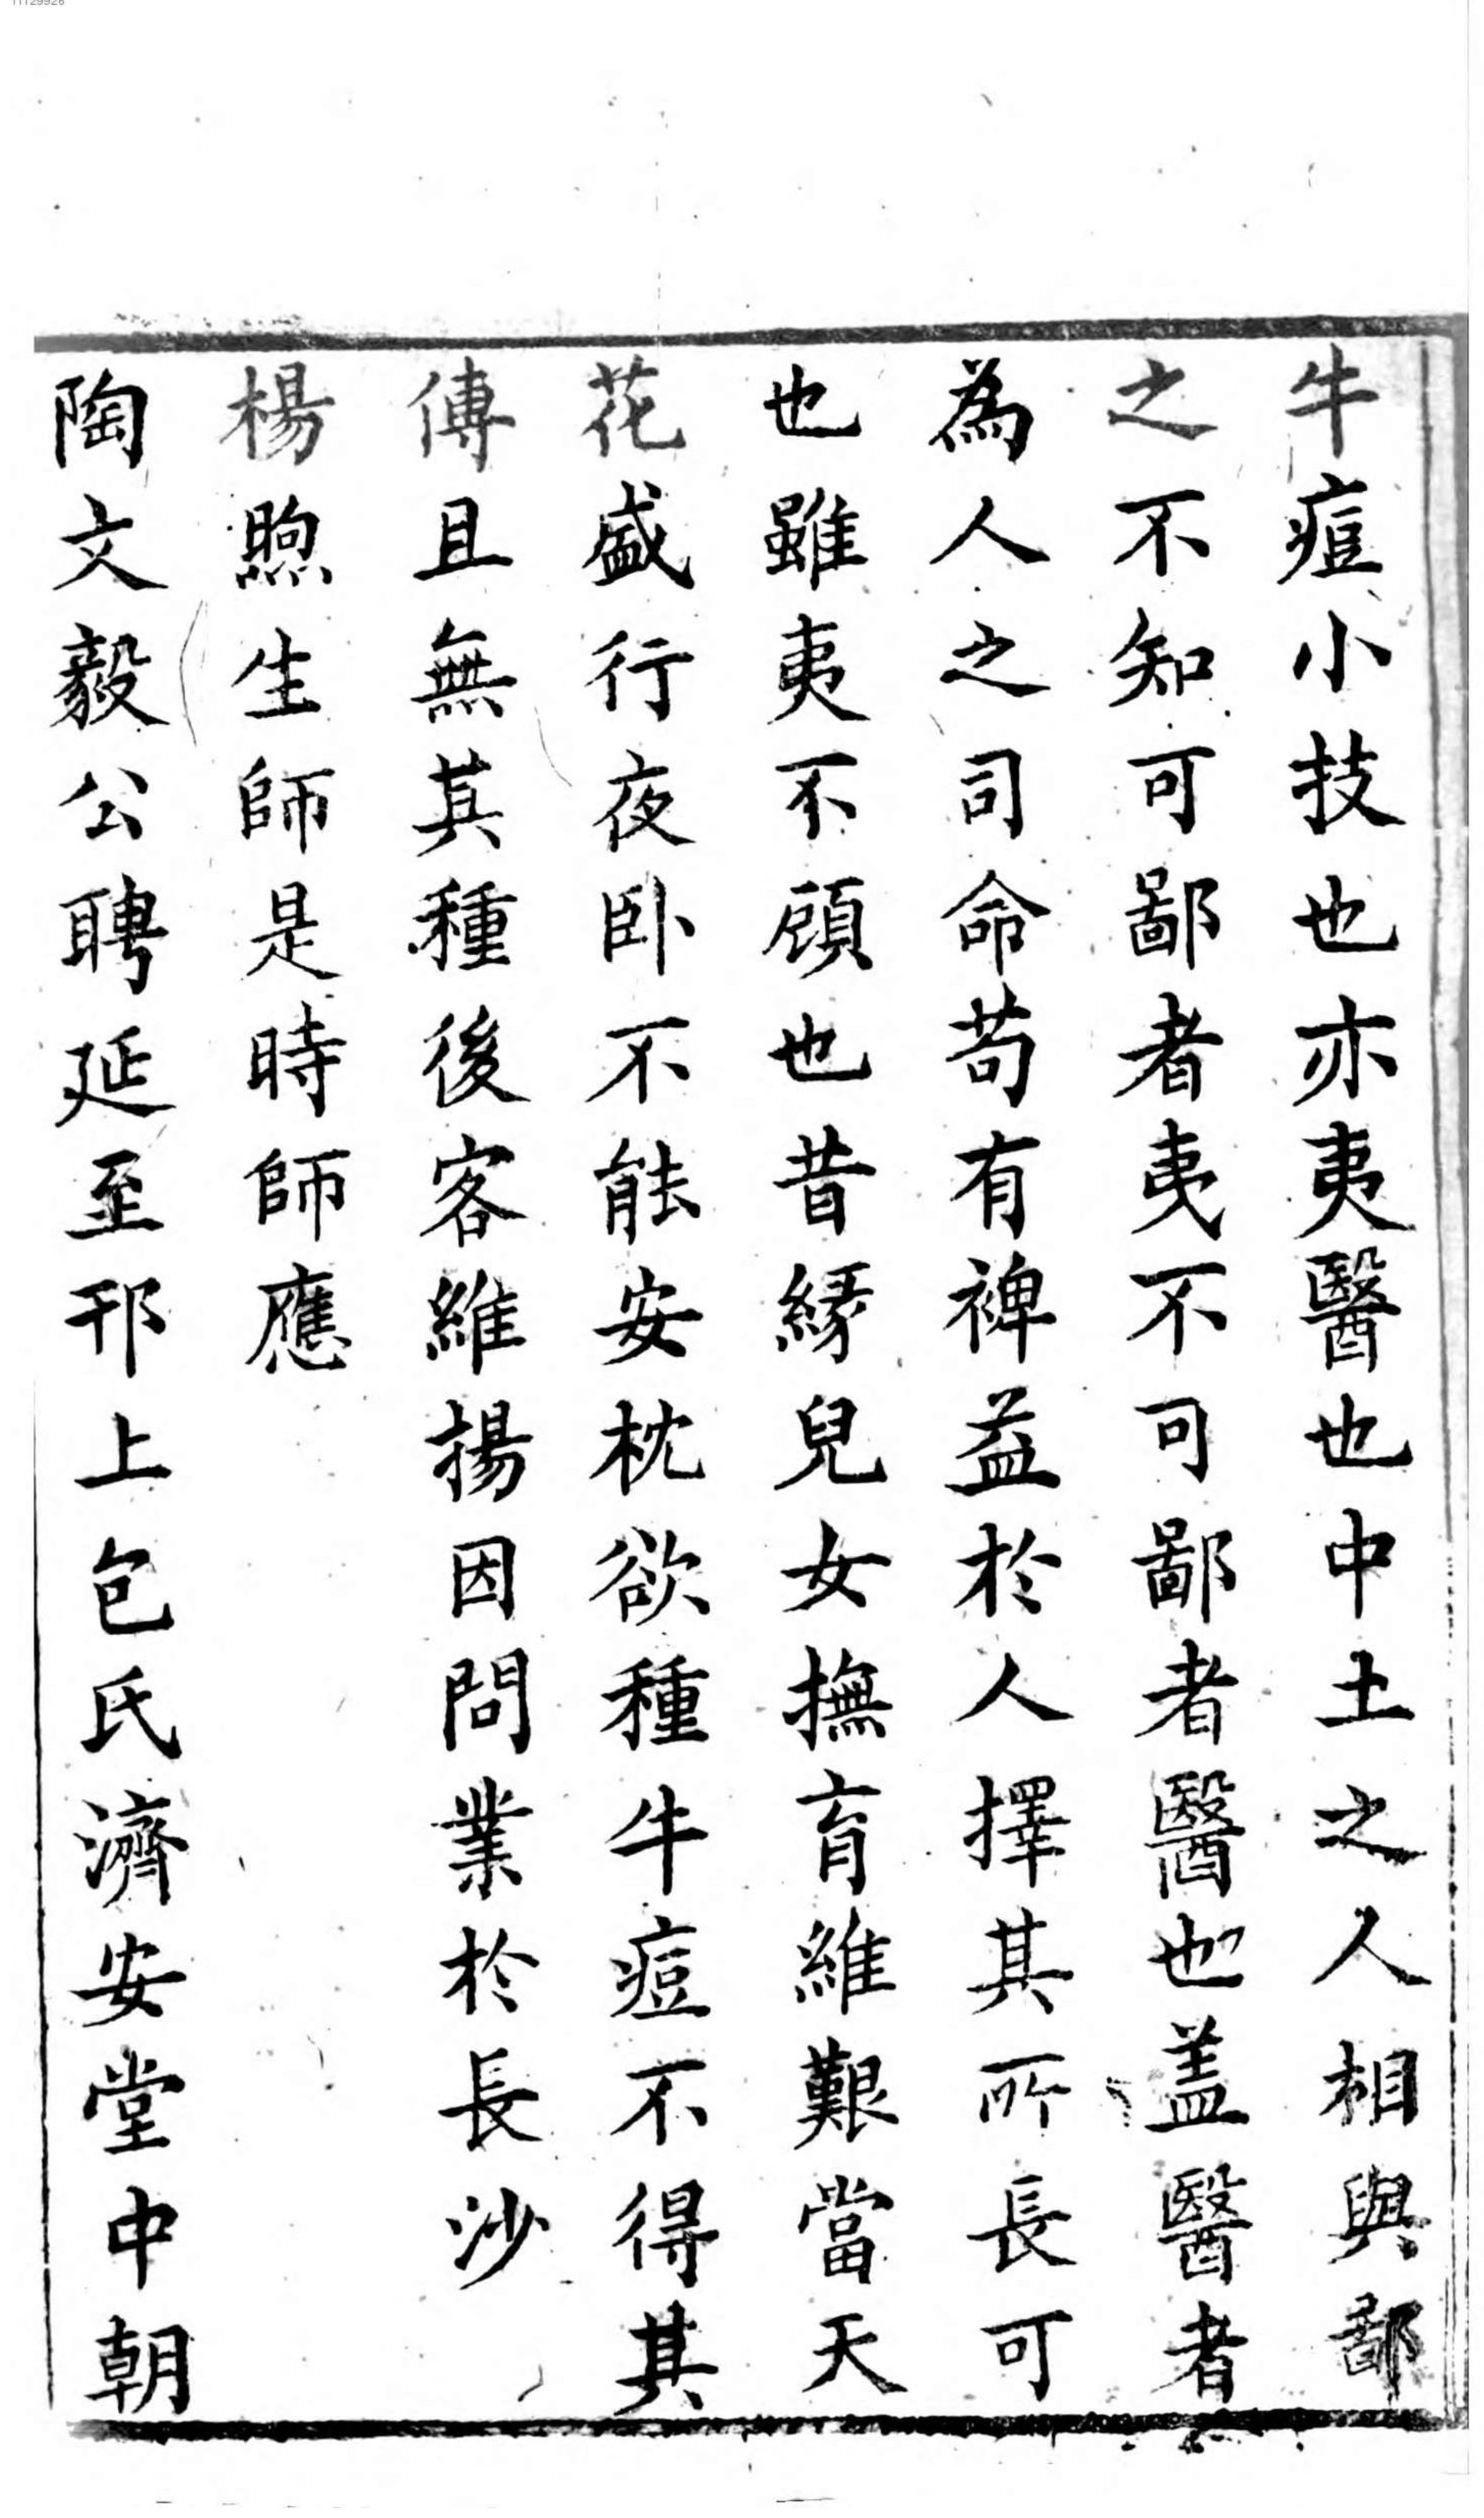 牛痘小技也亦夷醫也中土之人相與鄙
之不知可鄙者夷不可鄙者醫也盖醫者
為人之司命苟有裨益於人擇其所長可
也雖夷不顧也昔緣兒女撫育維艱當天
花盛行夜卧不能安枕欲種牛痘不得其
傳且無其種後客維揚因問業於長沙
楊煦生師是時師應
陶文毅公聘延至邗上包氏濟安堂中朝